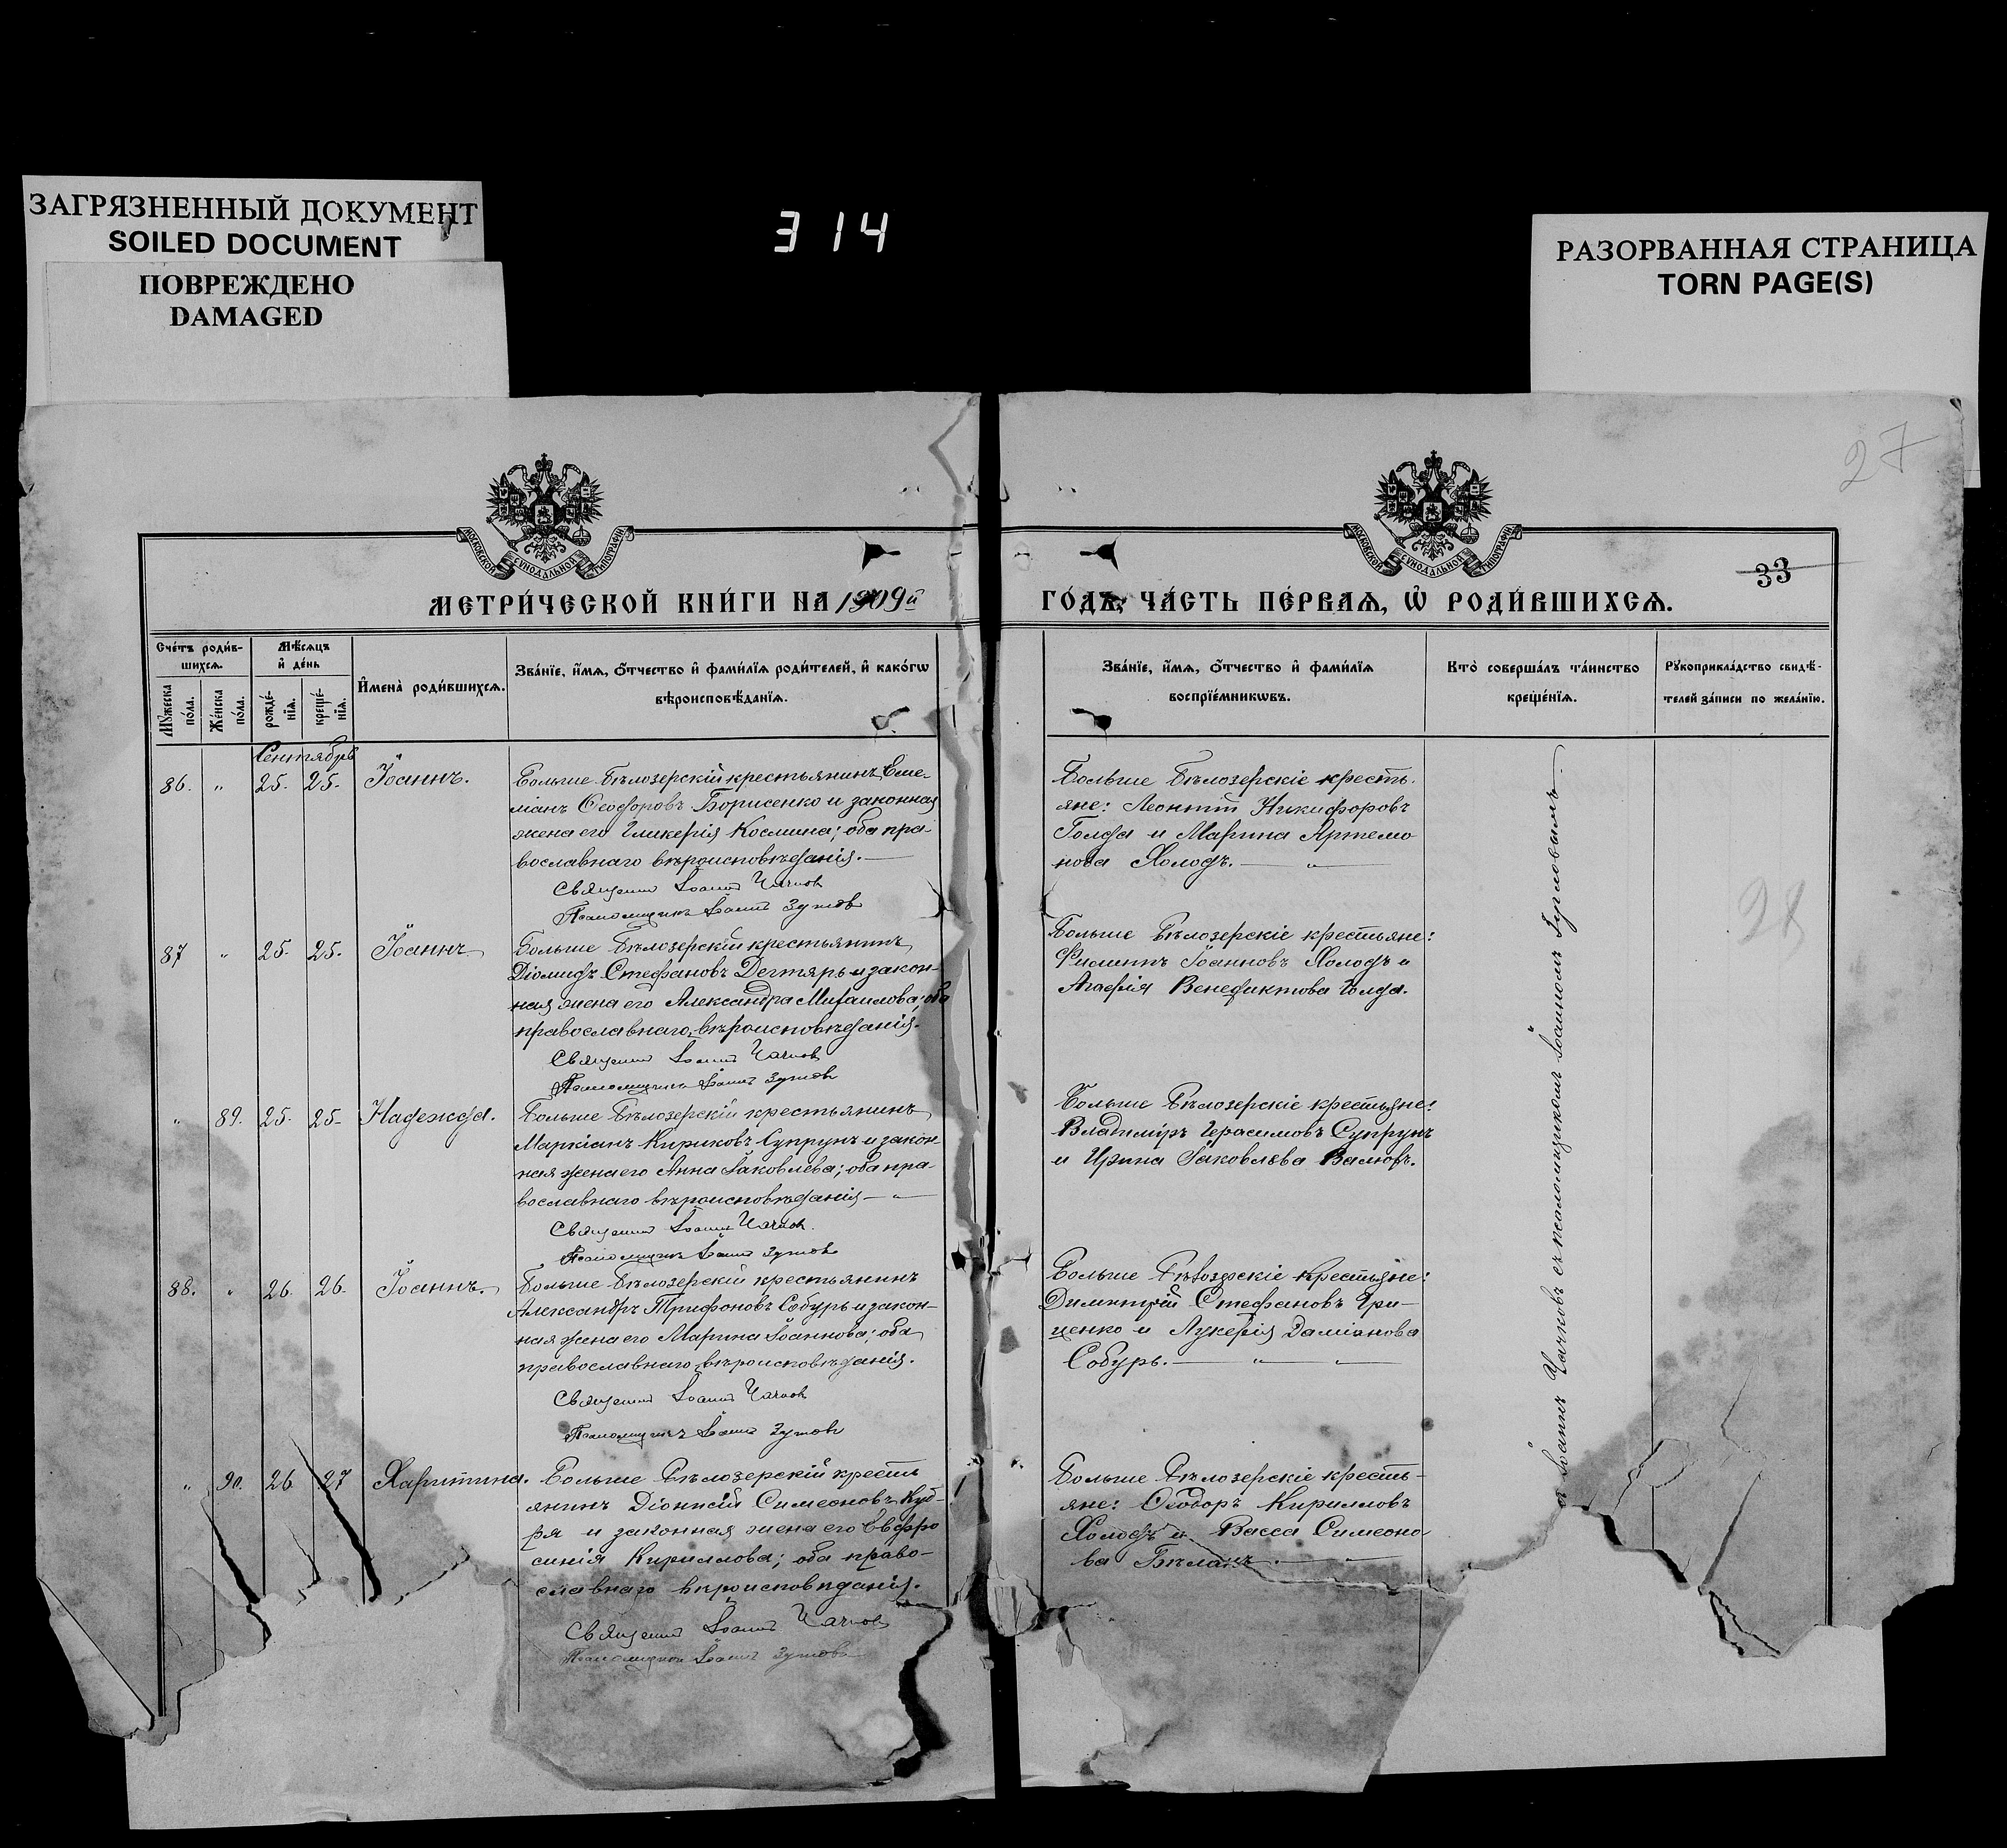 ЗАГРЯЗНЕННЫЙ ДОКУМЕНТ
SOILED DOCUMENT
ПОВРЕЖДЕНО
DAMAGED
314
РАЗОРВАННАЯ СТРАНИЦА
TORN PAGE(S)
27
МОСКОВСКОЙ СѴНОДАЛЬНОЙ ТИПОГРАФІИ
МОСКОВСКОЙ СѴНОДАЛЬНОЙ ТИПОГРАФІИ
33
МЕТРИ́ЧЕСКОЙ КНИ́ГИ НА 1909й
ГО́ДЪ, ЧА́СТЬ ПЕ́РВАѦ, Ѡ҆ РОДИ́ВШИХСѦ.
Сче́тъ роди́в-
шихсѧ.
Мꙋ́жеска по́ла.
Же́нска по́ла.
Мѣ́сѧцъ
и҆ де́нь
рожде́-
нїѧ.
креще́-
нїѧ.
И҆мена̀ роди́вшихсѧ.
Зва́нїе, и҆́мѧ, ѻ҆́тчество и҆ фами́лїѧ роди́телей, и҆ како́гѡ
вѣроисповѣ́данїѧ.
Зва́нїе, и҆́мѧ, ѻ҆́тчество и҆ фами́лїѧ
воспрїе́мникѡвъ.
Кто̀ соверша́лъ та́инство
креще́нїѧ.
Рꙋкоприкла́дство свидѣ́-
телей за́писи по жела́нїю.
Сентябрь
86. " 25. 25. Іоаннъ.
Больше-Бѣлозерскій крестьянинъ Еме-
ліанъ Ѳеодоровъ Борисенко и законная
жена его Гликерія Космина; оба пра-
вославнаго вѣроисповѣданія.
Священникъ Іоаннъ
Псаломщикъ Іоаннъ
Больше Бѣлозерскіе кресть-
яне: Леонтій Никифоровъ
Голда и Марина Артемо
нова Холодъ. "
87 " 25. 25. Іоаннъ
Больше Бѣлозерскій крестьянинъ
Діомидъ Стефановъ Дегтярь и закон-
ная жена его Александра Михаилова; оба
православнаго вѣроисповѣданія.
Священникъ Іоаннъ
Псаломщикъ Іоаннъ
Больше Бѣлозерскіе крестьяне:
Филиппъ Іоанновъ Холодъ и
Агафія Венедиктова Голда.
28
" 89. 25. 25. Надежда.
Больше Бѣлозерскій крестьянинъ
Маркіанъ Кириковъ Супрунъ и закон-
ная жена его Анна Іаковлева; оба пра-
вославнаго вѣроисповѣданія "
Священникъ Іоаннъ
Псаломщикъ Іоаннъ
Больше Бѣлозерскіе крестьяне:
Владиміръ Герасимовъ Супрунъ
и Ирина Іаковлева
88. " 26. 26. Іоаннъ.
Больше-Бѣлозерскій крестьянинъ
Александръ Трифоновъ Собурь и закон-
ная жена его Марина Іоаннова; оба
православнаго вѣроисповѣданія.
Священникъ Іоаннъ
Псаломщикъ Іоаннъ
Больше Бѣлозерскіе крестьяне:
Димитрій Стефановъ Гри-
ценко и Лукерія Даміанова
Собурь. " "
" 90. 26 27 Харитина.
Больше Бѣлозерскій кресть
янинъ Діонисій Симеоновъ Куд-
ря и законная жена его Евфро
синія Кириллова; оба право-
славнаго вѣроисповѣданія.
Священникъ Іоаннъ
Псаломщикъ Іоаннъ
Больше Бѣлозерскіе кресть-
яне: Ѳеодоръ Кирилловъ
Холодъ и Васса Симеоно-
ва Бѣланъ.
Іоаннъ съ псаломщикомъ Іоанномъ